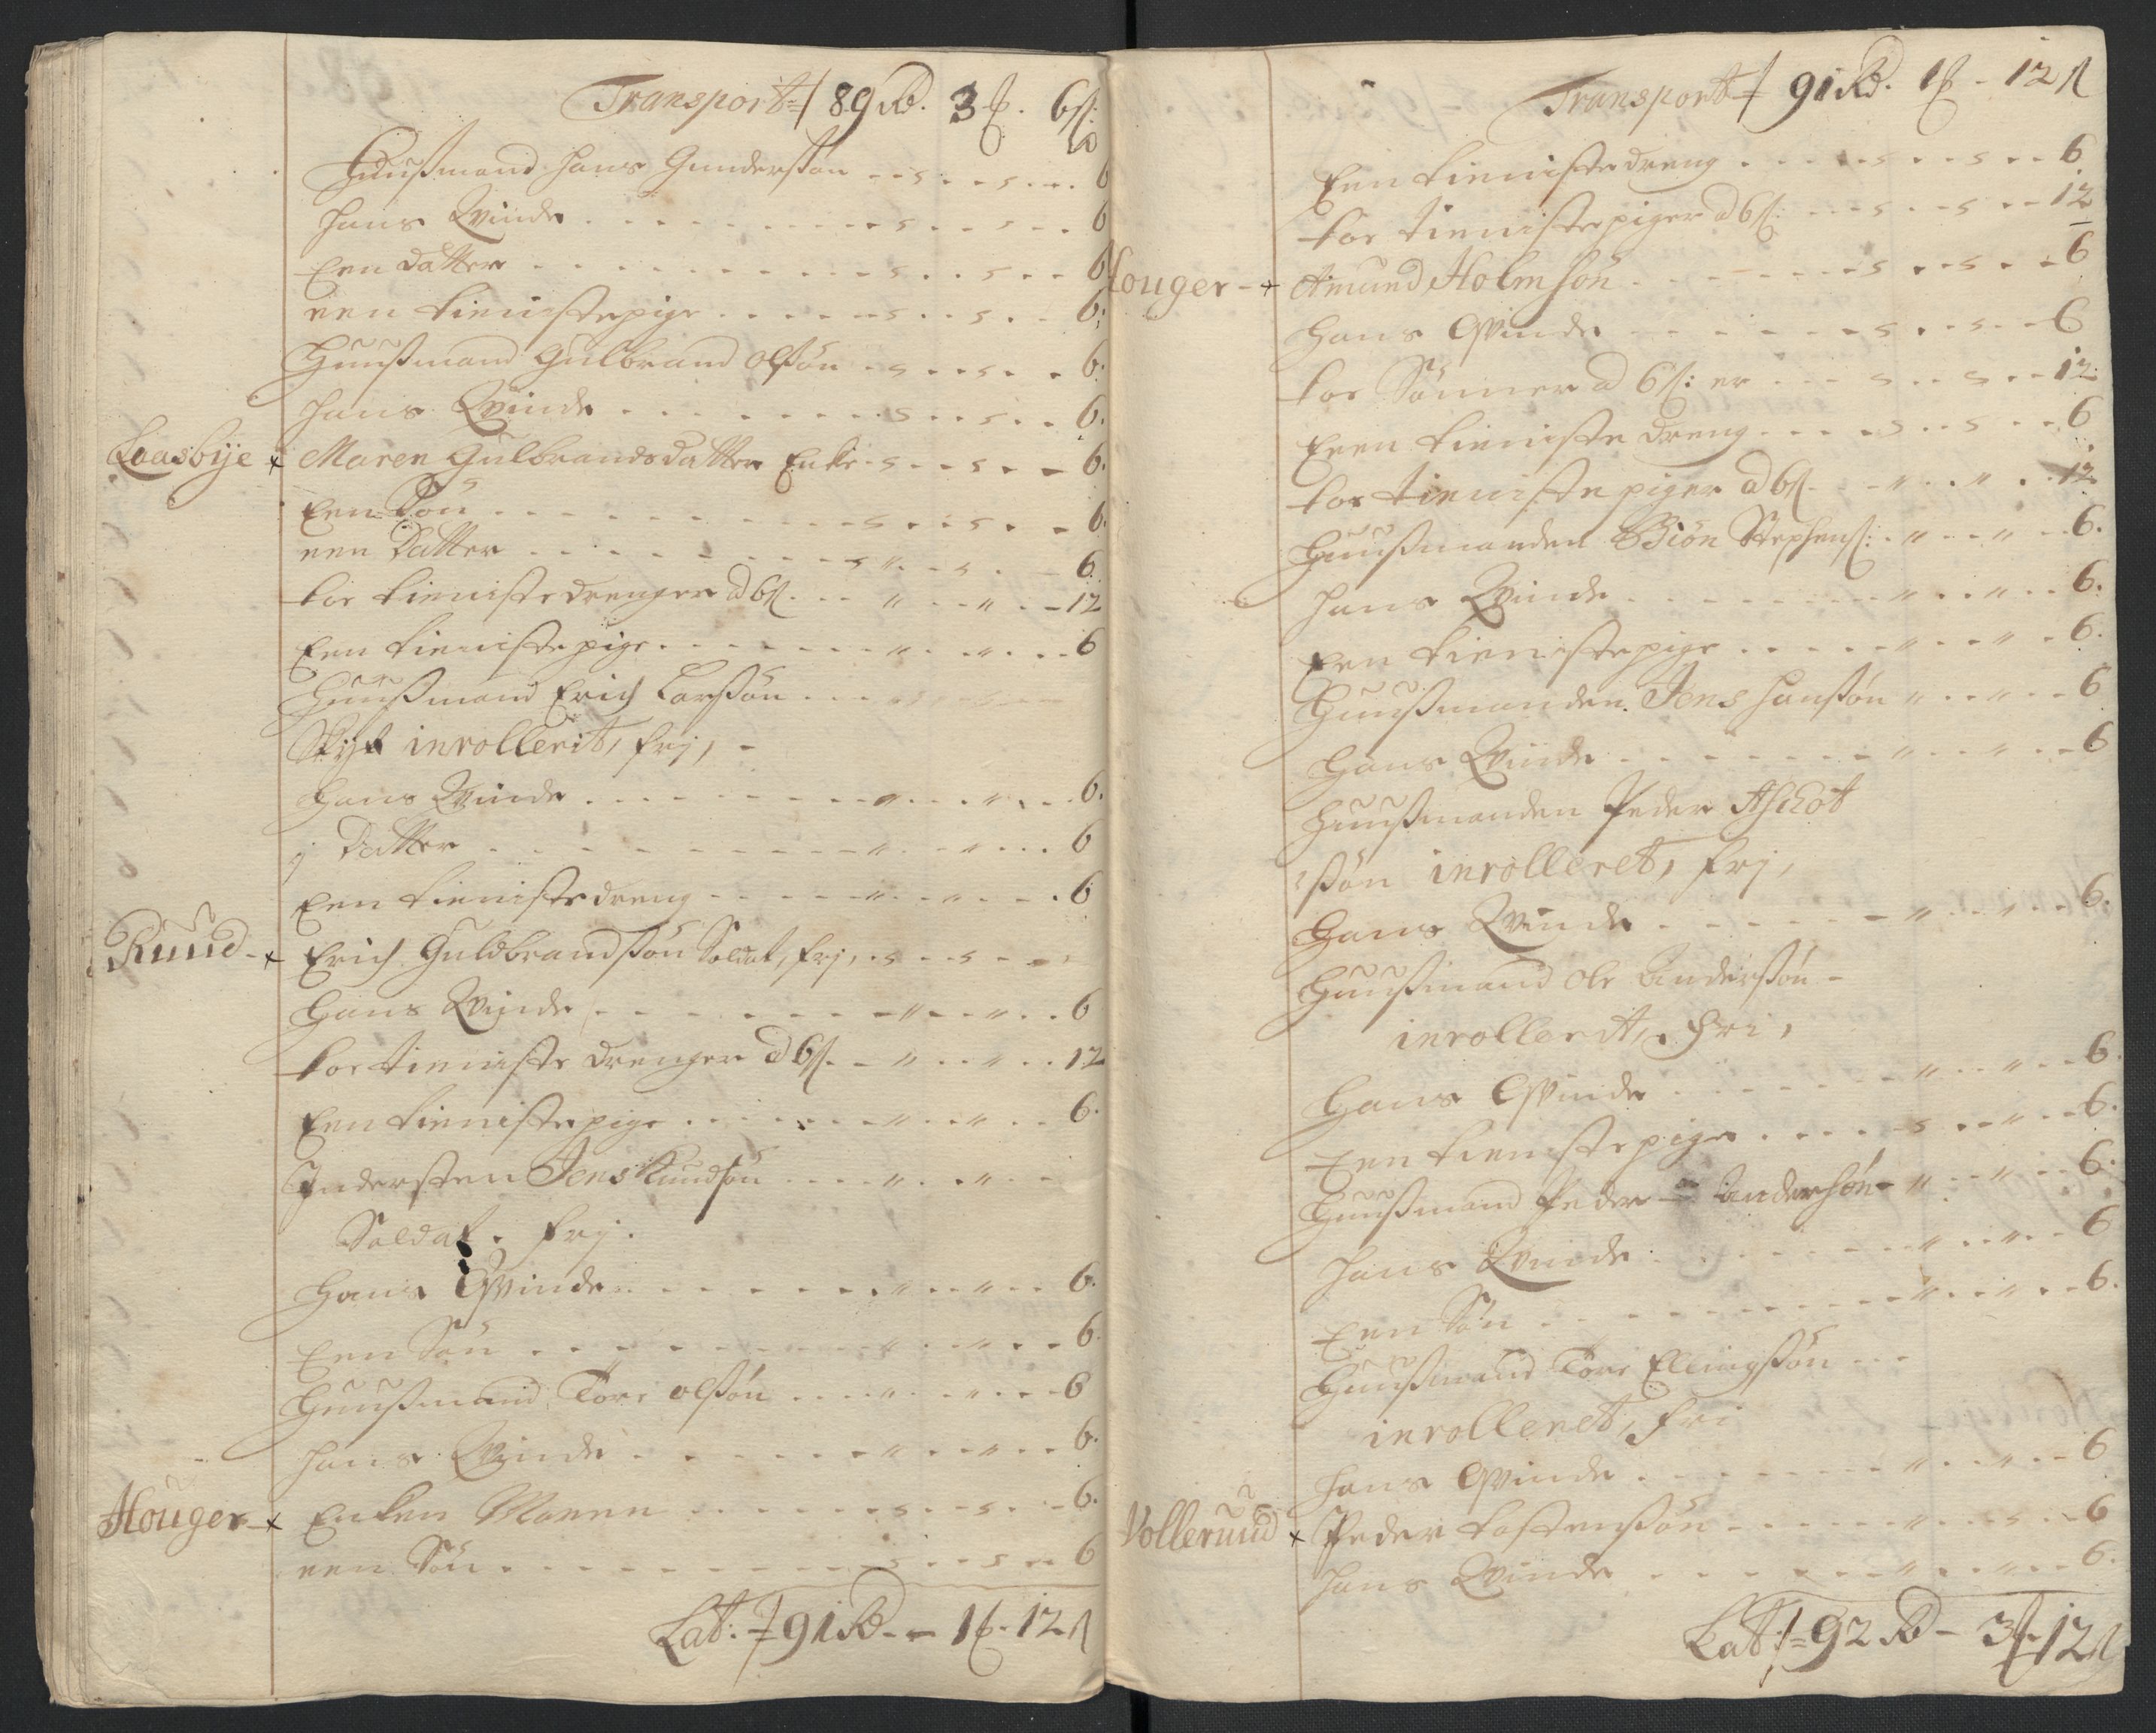 Transport 89 Rd. 3 ß. 6 ß:
Huußmand hans Gunderßøn 6
hans Qvinde 6
Een datter 6
een tienistepige 6:
Huußmand Gulbrand olßøn 6:
hans Qvinde 6.
Laasbÿe Maren Gulbrandsdatter Enke 6.
Een Søn 6.
een Datter 6
toe tienistedrenger a 6 ß. 12
Een tienistepige 6
Huußmand Erich Larßøn
inrollerit, frj,
hans Qvinde 6.
j Datter 6
Een tienistedreng 6
Ruud Erich Guldbrandßøn Soldat, frj,
hans Qvinde 6
toe tieniste drenger a 6 ß. 12
Een tienistepige 6.
Indersten Jens Knudsøn
Soldat. frj.
hans Qvinde 6.
Een Søn 6.
Huußmand Tore olßøn 6
hans Qvinde 6.
Houger Enken Maren 6.
een Søn 6
Lat: 91 Rd - 1 ß. 12 ß
Transport 91 Rd. 1 ß - 12 ß
Een tienistedreng 6
toe tienistepiger a 6 ß: 12
Houger Amund Holmsøn 6
hans Qvinde 6
toe Sønner a 6 ß: er 12
Een tieniste dreng 6
toe tienistepiger a 6 ß 12
Huußmanden Biøn Stephens: 6.
hans Qvinde 6.
Een tienistepige 6.
Huußmanden Jens hanßøn 6
hans Qvinde 6
Huußmanden Peder
ßøn inrolleret, frj,
hans Qvinde 6.
Huußmand ole Anderßøn
inrollerit, fri,
hans Qvinde 6.
Een tienistepige 6.
Huußmand Peder Andersøn 6.
hans Qvinde 6
Een Søn 6.
Huußmand Tore Ellingßøn
inrolleret, fri
hans Qvinde 6
Volleruud Peder tostenßøn 6
hans Qvinde 6.
Lat: 92 Rd - 3 ß 12 ß